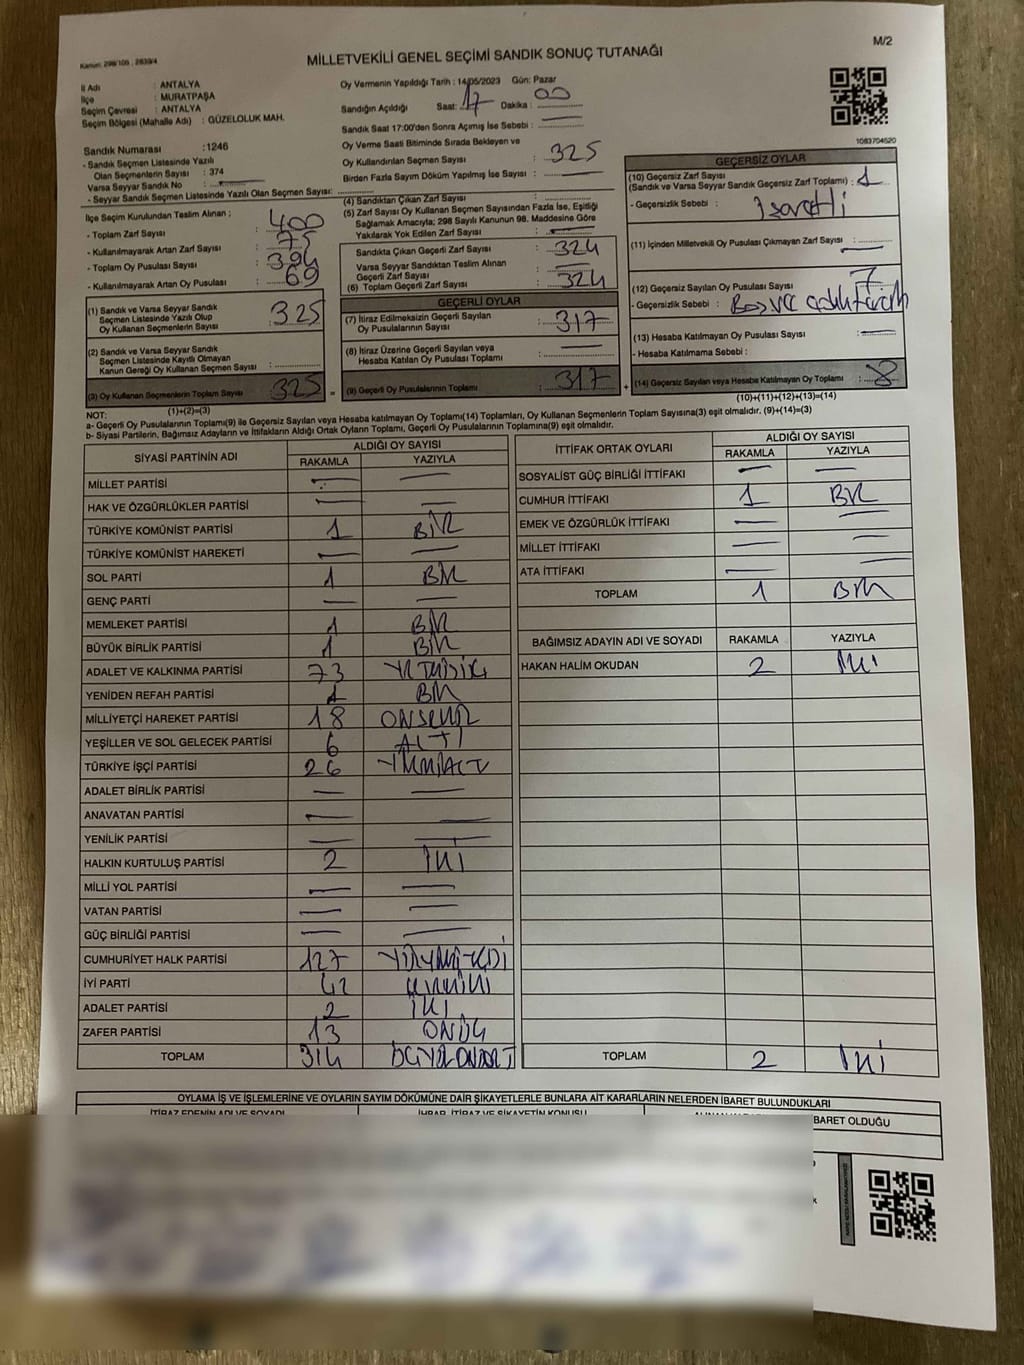 M/2
Kanun: 298/105 , 2839/4
MİLLETVEKİLİ GENEL SEÇİMİ SANDIK SONUÇ TUTANAĞI
İl Adı : ANTALYA
İlçe : MURATPAŞA
Seçim Çevresi : ANTALYA
Seçim Bölgesi (Mahalle Adı) : GÜZELOLUK MAH.
Sandık Numarası :1246
- Sandık Seçmen Listesinde Yazılı
Olan Seçmenlerin Sayısı : 374
Varsa Seyyar Sandık No :
- Seyyar Sandık Seçmen Listesinde Yazılı Olan Seçmen Sayısı:
Oy Vermenin Yapıldığı Tarih : 14/05/2023 Gün: Pazar
Sandığın Açıldığı Saat: 17 Dakika : 00
Sandık Saat 17:00'den Sonra Açımış İse Sebebi : —
Oy Verme Saati Bitiminde Sırada Bekleyen ve
Oy Kullandırılan Seçmen Sayısı : 325
Birden Fazla Sayım Döküm Yapılmış İse Sayısı : —
1083704520
İlçe Seçim Kurulundan Teslim Alınan ;
- Toplam Zarf Sayısı : 400
- Kullanılmayarak Artan Zarf Sayısı : 75
- Toplam Oy Pusulası Sayısı : 394
- Kullanılmayarak Artan Oy Pusulası : 69
(1) Sandık ve Varsa Seyyar Sandık
Seçmen Listesinde Yazılı Olup
Oy Kullanan Seçmenlerin Sayısı : 325
(2) Sandık ve Varsa Seyyar Sandık
Seçmen Listesinde Kayıtlı Olmayan
Kanun Gereği Oy Kullanan Seçmen Sayısı :
(3) Oy Kullanan Seçmenlerin Toplam Sayısı : 325
(1)+(2)=(3)
(4) Sandıktan Çıkan Zarf Sayısı :
(5) Zarf Sayısı Oy Kullanan Seçmen Sayısından Fazla İse, Eşitliği
Sağlamak Amacıyla; 298 Sayılı Kanunun 98. Maddesine Göre
Yakılarak Yok Edilen Zarf Sayısı : —
Sandıkta Çıkan Geçerli Zarf Sayısı : 324
Varsa Seyyar Sandıktan Teslim Alınan
Geçerli Zarf Sayısı : —
(6) Toplam Geçerli Zarf Sayısı : 324
GEÇERLİ OYLAR
(7) İtiraz Edilmeksizin Geçerli Sayılan
Oy Pusulalarının Sayısı : 317
(8) İtiraz Üzerine Geçerli Sayılan veya
Hesaba Katılan Oy Pusulası Toplamı : —
= (9) Geçerli Oy Pusulalarının Toplamı : 317 +
GEÇERSİZ OYLAR
(10) Geçersiz Zarf Sayısı
(Sandık ve Varsa Seyyar Sandık Geçersiz Zarf Toplamı) : 1
- Geçersizlik Sebebi : İşaretli
(11) İçinden Milletvekili Oy Pusulası Çıkmayan Zarf Sayısı : —
(12) Geçersiz Sayılan Oy Pusulası Sayısı : 7
- Geçersizlik Sebebi : Boş ve
(13) Hesaba Katılmayan Oy Pusulası Sayısı : —
- Hesaba Katılmama Sebebi :
(14) Geçersiz Sayılan veya Hesaba Katılmayan Oy Toplamı : 8
(10)+(11)+(12)+(13)=(14)
NOT:
a- Geçerli Oy Pusulalarının Toplamı(9) ile Geçersiz Sayılan veya Hesaba katılmayan Oy Toplamı(14) Toplamları, Oy Kullanan Seçmenlerin Toplam Sayısına(3) eşit olmalıdır. (9)+(14)=(3)
b- Siyasi Partilerin, Bağımsız Adayların ve İttifakların Aldığı Ortak Oyların Toplamı, Geçerli Oy Pusulalarının Toplamına(9) eşit olmalıdır.
SİYASİ PARTİNİN ADI ALDIĞI OY SAYISI
RAKAMLA YAZIYLA
MİLLET PARTİSİ — —
HAK VE ÖZGÜRLÜKLER PARTİSİ — —
TÜRKİYE KOMÜNİST PARTİSİ 1 BİR
TÜRKİYE KOMÜNİST HAREKETİ — —
SOL PARTİ 1 BİR
GENÇ PARTİ — —
MEMLEKET PARTİSİ 1 BİR
BÜYÜK BİRLİK PARTİSİ 1 BİR
ADALET VE KALKINMA PARTİSİ 73 YETMİŞÜÇ
YENİDEN REFAH PARTİSİ 1 BİR
MİLLİYETÇİ HAREKET PARTİSİ 18 ONSEKİZ
YEŞİLLER VE SOL GELECEK PARTİSİ 6 ALTI
TÜRKİYE İŞÇİ PARTİSİ 26 YİRMİALTI
ADALET BİRLİK PARTİSİ — —
ANAVATAN PARTİSİ — —
YENİLİK PARTİSİ — —
HALKIN KURTULUŞ PARTİSİ 2 İKİ
MİLLİ YOL PARTİSİ — —
VATAN PARTİSİ — —
GÜÇ BİRLİĞİ PARTİSİ — —
CUMHURİYET HALK PARTİSİ 127 YÜZYİRMİYEDİ
İYİ PARTİ 42 KIRKİKİ
ADALET PARTİSİ 2 İKİ
ZAFER PARTİSİ 13 ONÜÇ
TOPLAM 314 ÜÇYÜZONDÖRT
İTTİFAK ORTAK OYLARI ALDIĞI OY SAYISI
RAKAMLA YAZIYLA
SOSYALİST GÜÇ BİRLİĞİ İTTİFAKI — —
CUMHUR İTTİFAKI 1 BİR
EMEK VE ÖZGÜRLÜK İTTİFAKI — —
MİLLET İTTİFAKI — —
ATA İTTİFAKI — —
TOPLAM 1 BİR
BAĞIMSIZ ADAYIN ADI VE SOYADI RAKAMLA YAZIYLA
HAKAN HALİM OKUDAN 2 İKİ
TOPLAM 2 İKİ
OYLAMA İŞ VE İŞLEMLERİNE VE OYLARIN SAYIM DÖKÜMÜNE DAİR ŞİKAYETLERLE BUNLARA AİT KARARLARIN NELERDEN İBARET BULUNDUKLARI
İTİRAZ EDENİN ADI VE SOYADI İHBAR, İTİRAZ VE ŞİKAYETİN KONUSU
BARET OLDUĞU